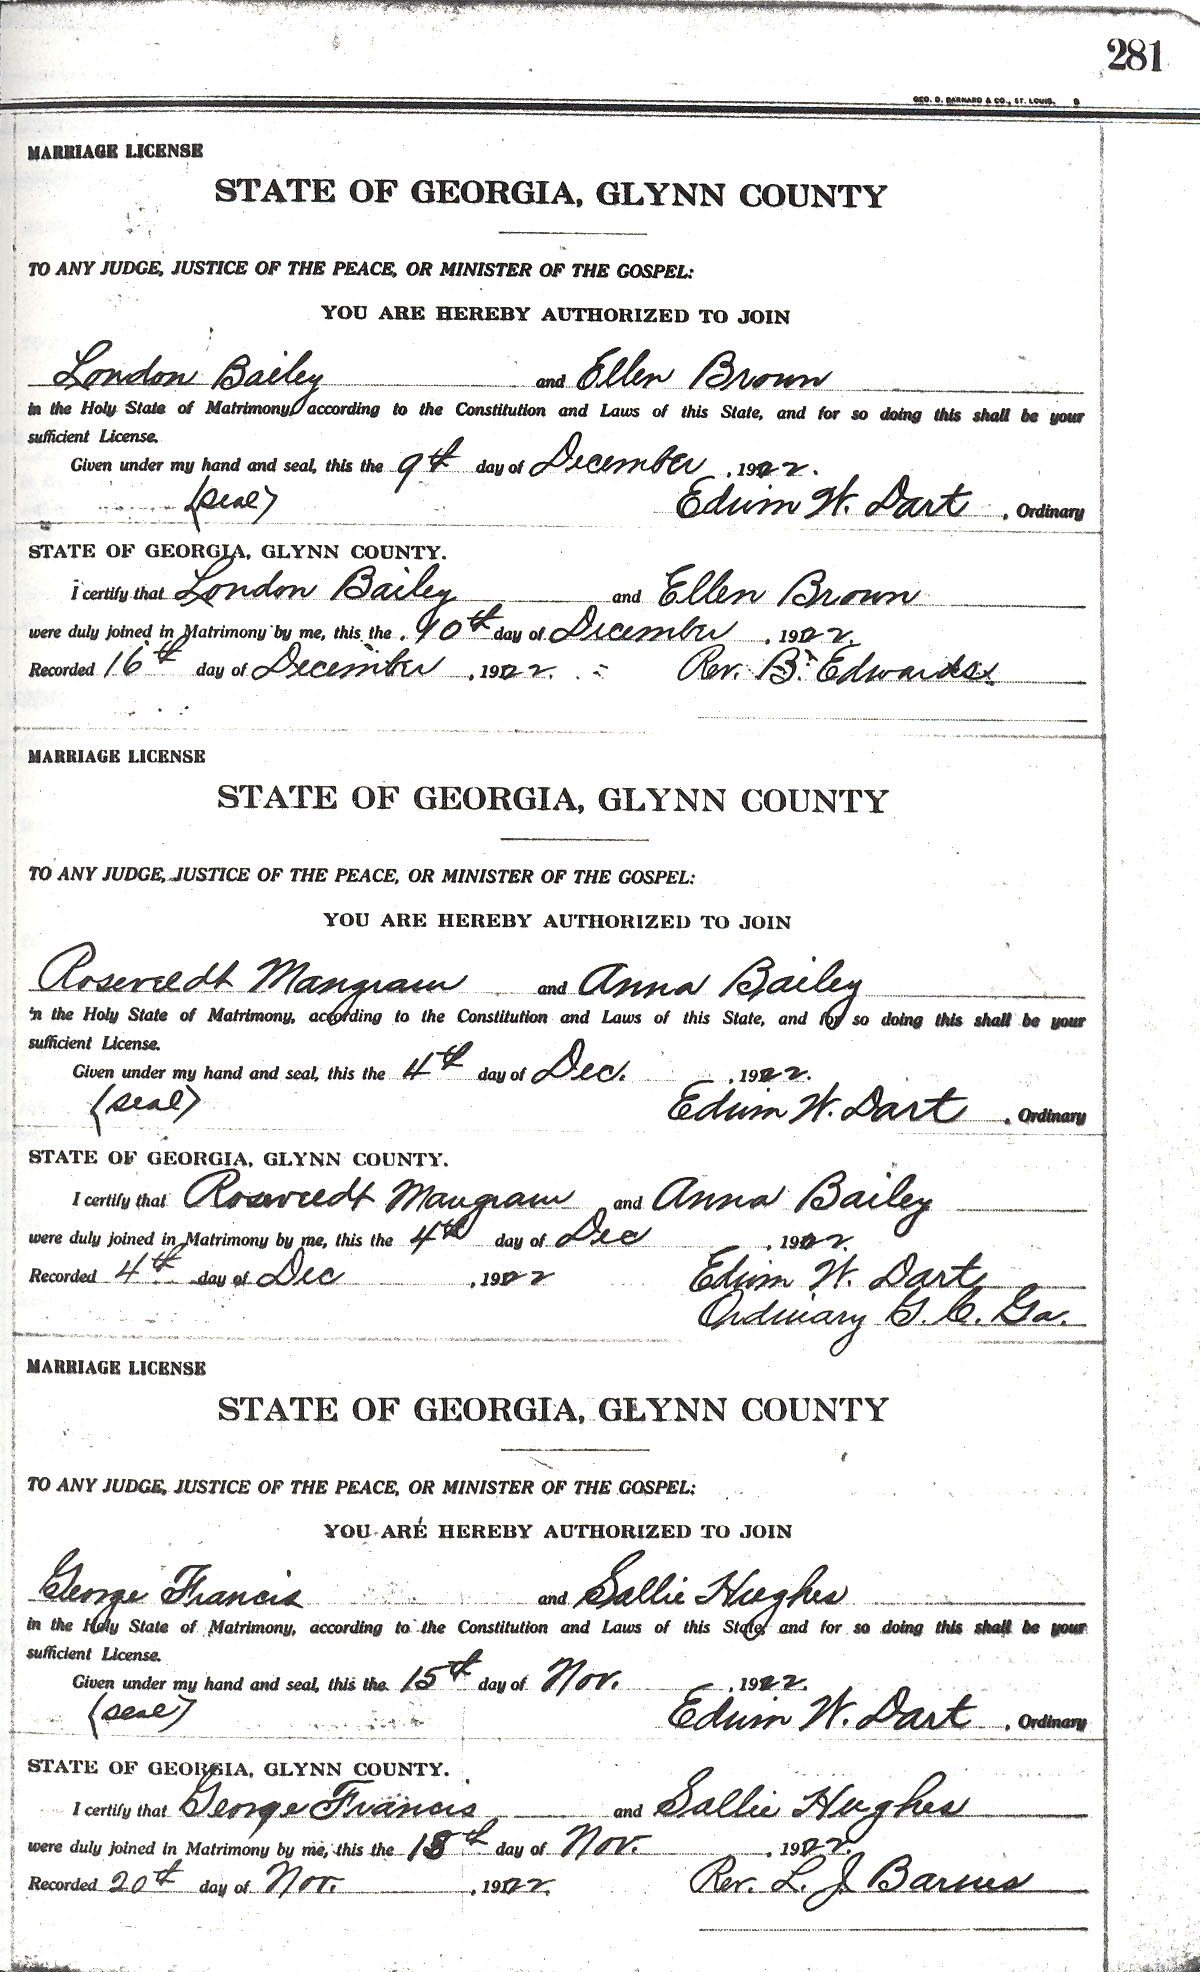 281
GEO. D. BARNARD & CO., ST. LOUIS.
MARRIAGE LICENSE
STATE OF GEORGIA, GLYNN COUNTY
TO ANY JUDGE, JUSTICE OF THE PEACE, OR MINISTER OF THE GOSPEL:
YOU ARE HEREBY AUTHORIZED TO JOIN
London Bailey and Ellen Brown
in the Holy State of Matrimony, according to the Constitution and Laws of this State, and for so doing this shall be your
sufficient License.
Given under my hand and seal, this the 9th day of December, 1922.
(seal) Edwin W. Dart, Ordinary
STATE OF GEORGIA, GLYNN COUNTY.
I certify that London Bailey and Ellen Brown
were duly joined in Matrimony by me, this the 10th day of December, 1922.
Recorded 16th day of December, 1922. Rev. B. Edwards.
MARRIAGE LICENSE
STATE OF GEORGIA, GLYNN COUNTY
TO ANY JUDGE, JUSTICE OF THE PEACE, OR MINISTER OF THE GOSPEL:
YOU ARE HEREBY AUTHORIZED TO JOIN
Roseveedt Mangram and Anna Bailey
in the Holy State of Matrimony, according to the Constitution and Laws of this State, and for so doing this shall be your
sufficient License.
Given under my hand and seal, this the 4th day of Dec., 1922.
(seal) Edwin W. Dart, Ordinary
STATE OF GEORGIA, GLYNN COUNTY.
I certify that Roseveedt Mangram and Anna Bailey
were duly joined in Matrimony by me, this the 4th day of Dec, 1922.
Recorded 4th day of Dec, 1922 Edwin W. Dart
Ordinary G. C. Ga.
MARRIAGE LICENSE
STATE OF GEORGIA, GLYNN COUNTY
TO ANY JUDGE, JUSTICE OF THE PEACE, OR MINISTER OF THE GOSPEL:
YOU ARE HEREBY AUTHORIZED TO JOIN
George Francis and Sallie Hughes
in the Holy State of Matrimony, according to the Constitution and Laws of this State, and for so doing this shall be your
sufficient License.
Given under my hand and seal, this the 15th day of Nov., 1922.
(seal) Edwin W. Dart, Ordinary
STATE OF GEORGIA, GLYNN COUNTY.
I certify that George Francis and Sallie Hughes
were duly joined in Matrimony by me, this the 18th day of Nov., 1922.
Recorded 20th day of Nov., 1922. Rev. L. J. Barnes